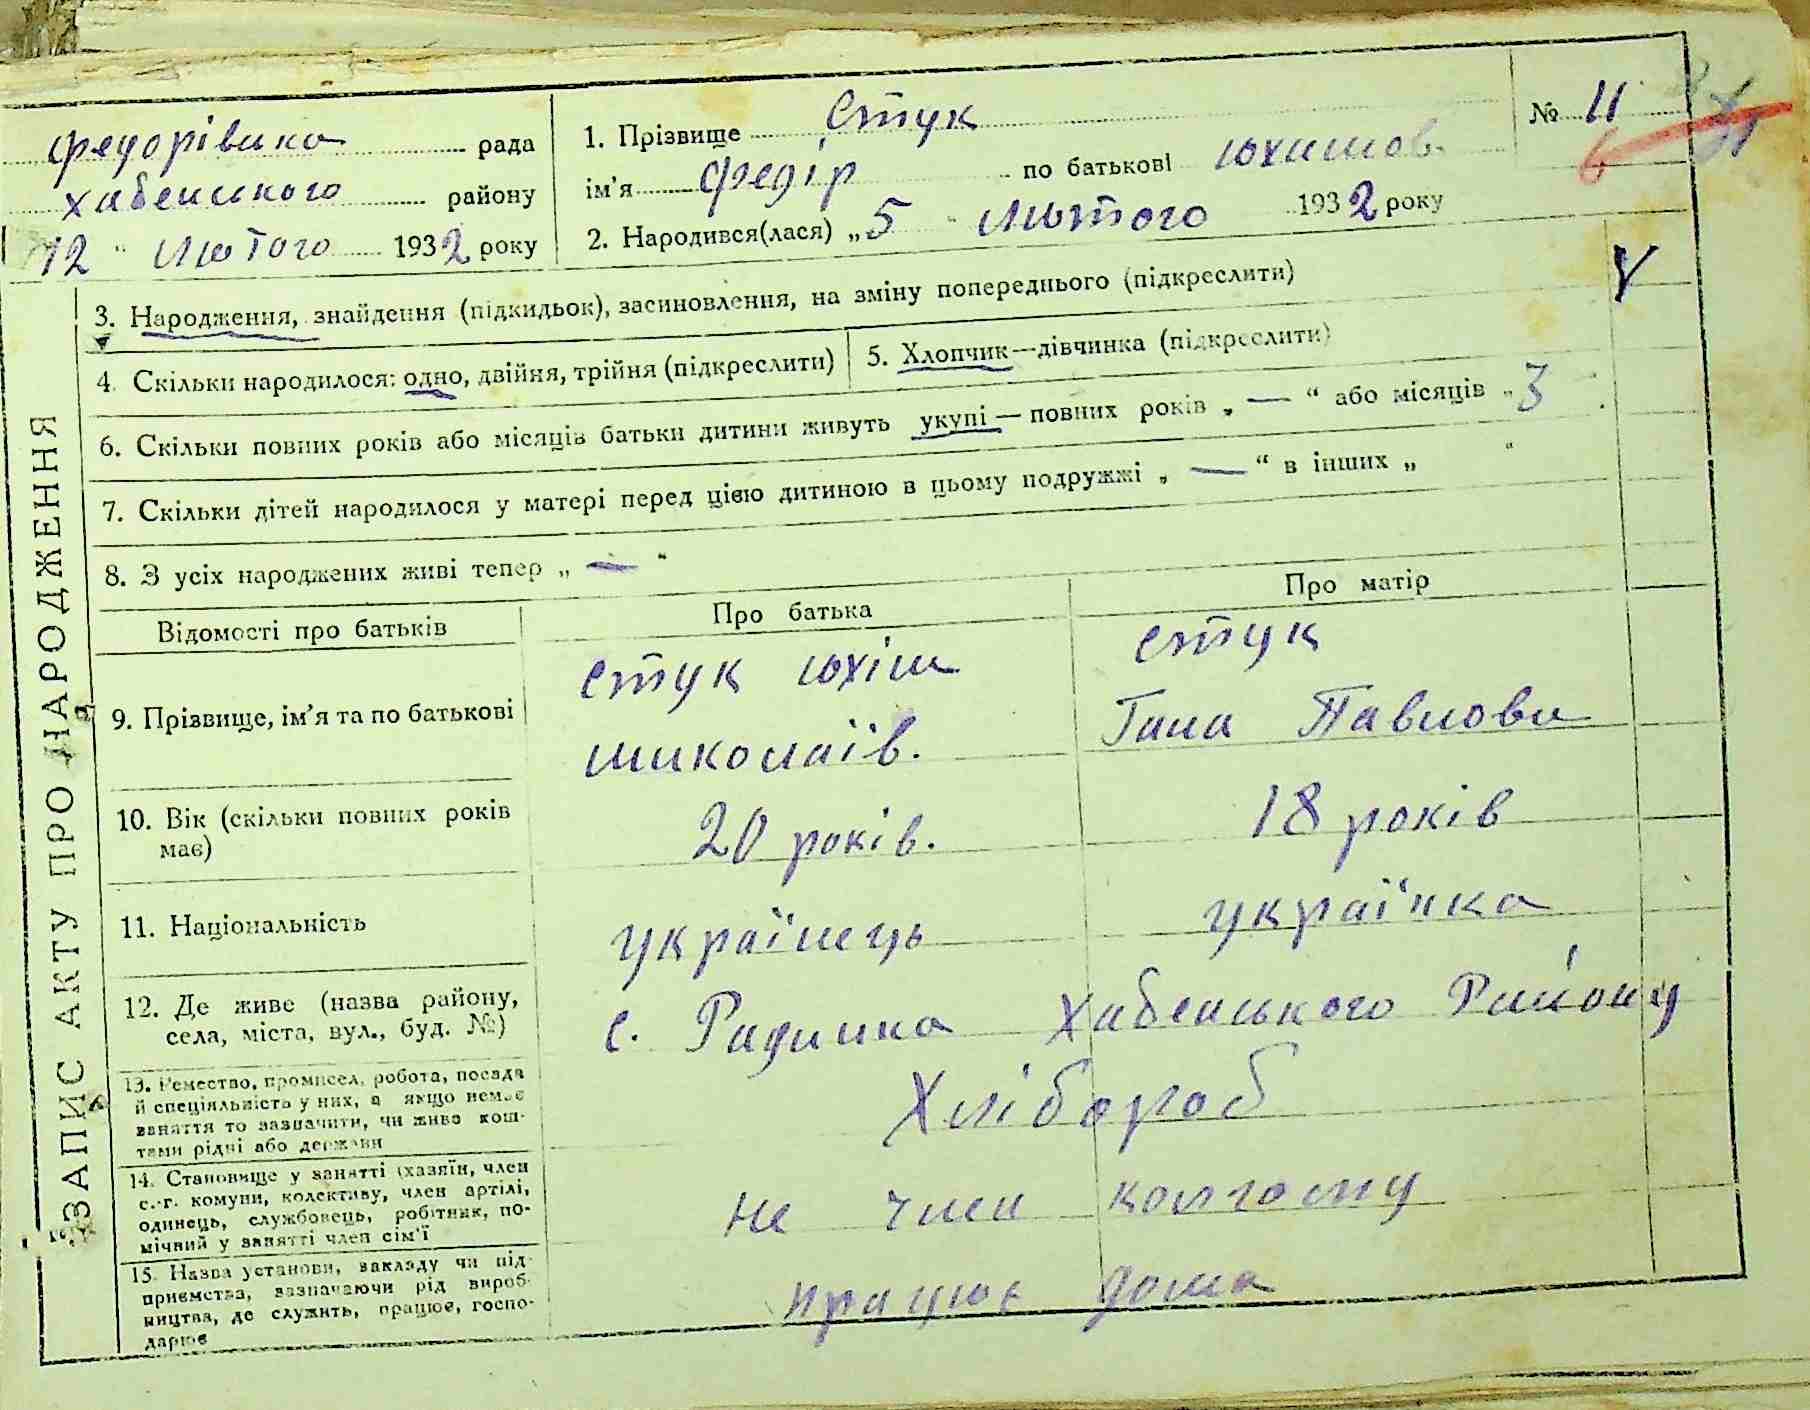 Федорівка рада
Хабенського району
12 " Лютого 1932 року
1. Прізвище Стук
ім'я Федір по батькові Юхимов.
2. Народився(лася) „5 " Лютого 1932 року
№ 11
3. Народження, знайдення (підкидьок), засиновлення, на зміну попереднього (підкреслити)
4. Скільки народилося: одно, двійня, трійня (підкреслити)
5. Хлопчик—дівчинка (підкреслити)
6. Скільки повних років або місяців батьки дитини живуть укупі — повних років „ — “ або місяців „ 3
7. Скільки дітей народилося у матері перед цією дитиною в цьому подружжі „ — “ в інших „ “
8. З усіх народжених живі тепер „ — “
Відомості про батьків
Про батька
Про матір
9. Прізвище, ім'я та по батькові
Стук Юхім
Миколаїв.
Стук
Гана Павлова
10. Вік (скільки повних років
має)
20 років.
18 років
11. Національність
українець
українка
12. Де живе (назва району,
села, міста, вул., буд. №)
с. Радинка Хабенського Району
13. Ремество, промисел, робота, посада
й спеціяльність у них, а якщо немає
заняття то зазначити, чи живе кош-
тами рідні або держави
Хлібороб
14. Становище у занятті (хазяїн, член
с.-г. комуни, колективу, член артілі,
одинець, службовець, робітник, по-
мічний у занятті член сім'ї
не член колгоспу
15. Назва установи, закладу чи під-
приємства, зазначаючи рід вироб-
ництва, де служить, працює, госпо-
дарює
працює дома
ЗАПИС АКТУ ПРО НАРОДЖЕННЯ